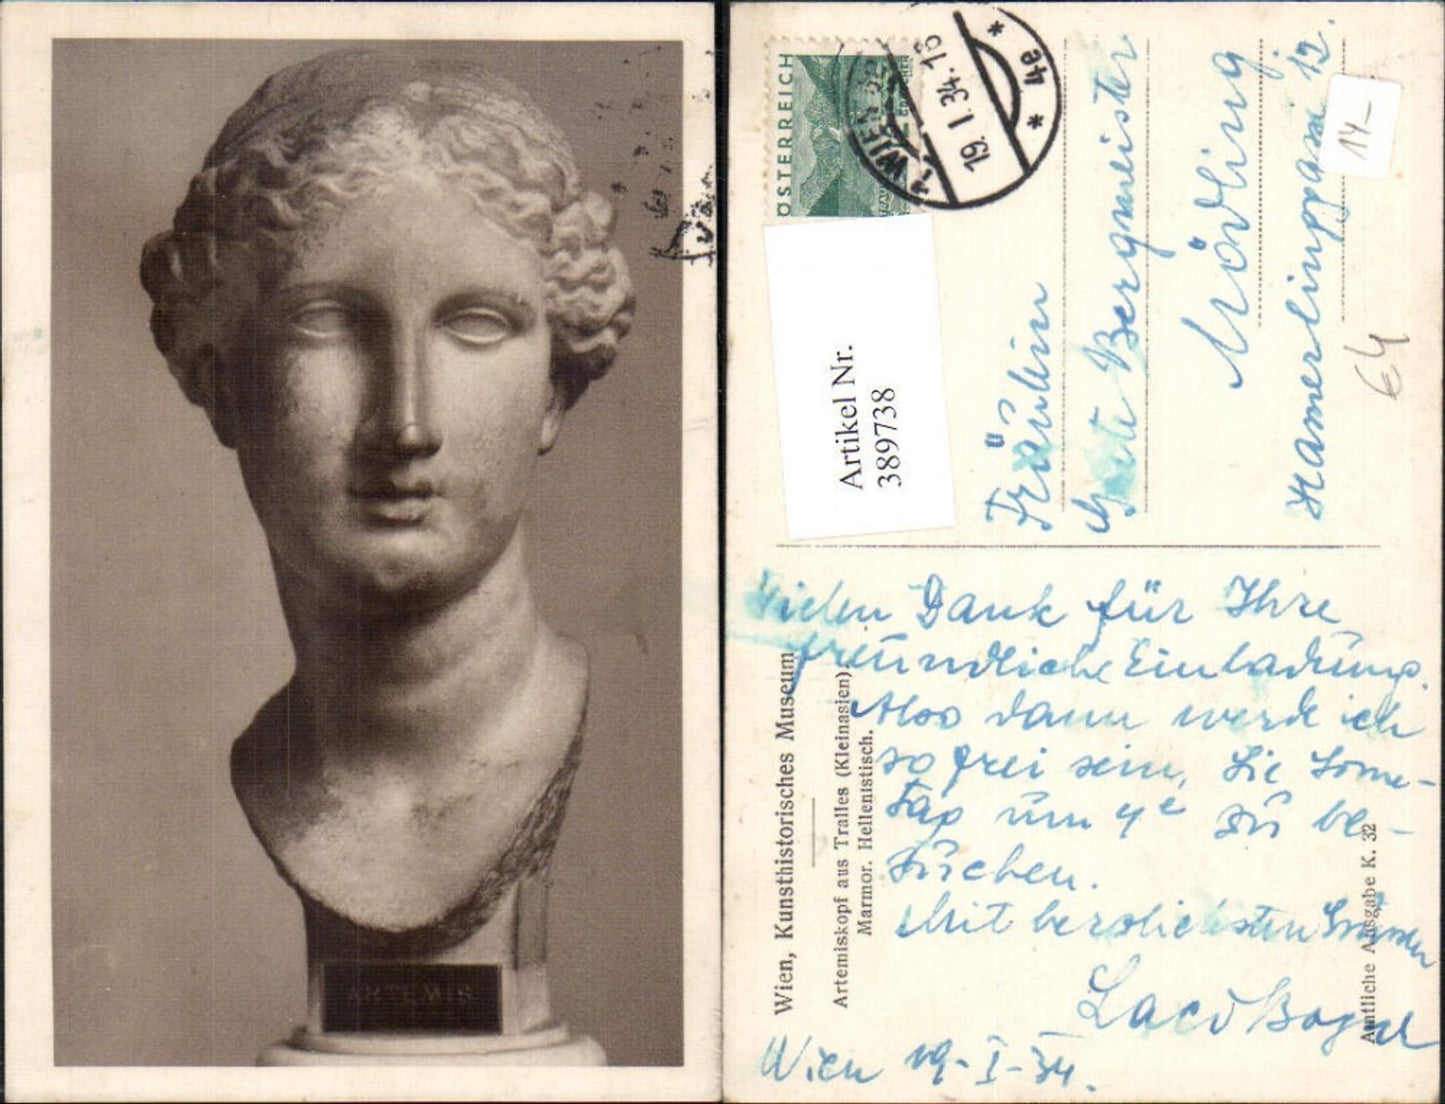 ARTEMIS
ÖSTERREICH
WIEN
19. I. 34. 18
* 4e *
14-
Artikel Nr.
389738
Fräulein
Grete Bergmeister
Mödling
Hamerlinggasse 12.
Wien, Kunsthistorisches Museum
Artemiskopf aus Tralles (Kleinasien).
Marmor. Hellenistisch.
Amtliche Ausgabe K. 32
Vielen Dank für Ihre
freundliche Einladung.
Also dann werde ich
so frei sein, Sie Sonn-
tag um 4 zu be-
suchen.
Mit herzlichsten Grüssen
Wien 19-I-34.